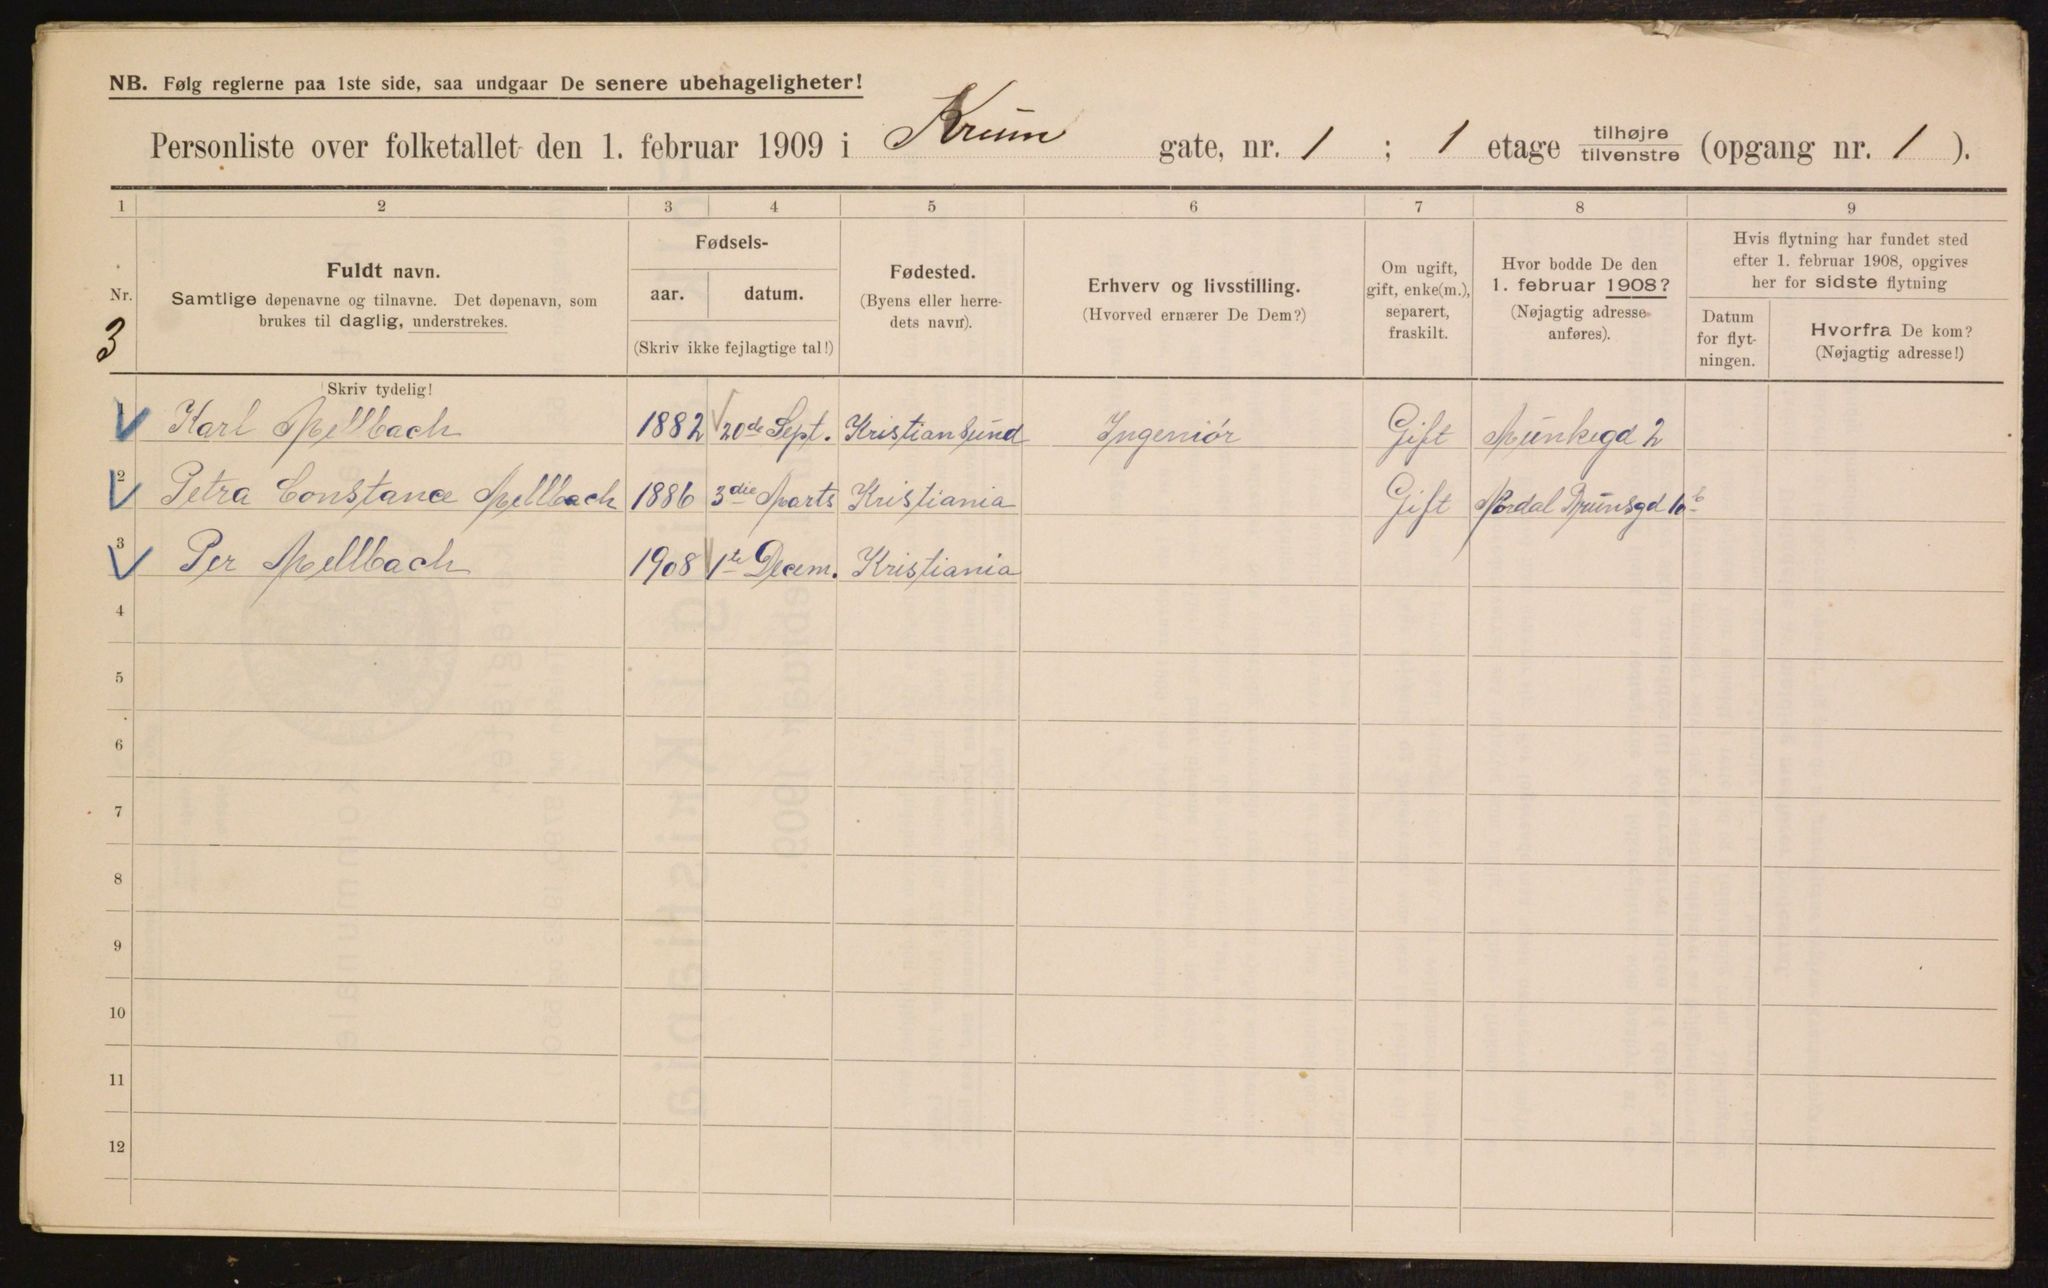 NB. Følg reglerne paa 1ste side, saa undgaar De senere ubehageligheter!
Personliste over folketallet den 1. februar 1909 i Krum gate, nr. 1 ; 1 etage tilhøjre/tilvenstre (opgang nr. 1 ).
1 2 3 4 5 6 7 8 9
Nr.
3
Fuldt navn.
Samtlige døpenavne og tilnavne. Det døpenavn, som
brukes til daglig, understrekes.
Skriv tydelig!
Fødsels-
aar. datum.
(Skriv ikke fejlagtige tal!)
Fødested.
(Byens eller herre-
dets navn).
Erhverv og livsstilling.
(Hvorved ernærer De Dem?)
Om ugift,
gift, enke(m.),
separert,
fraskilt.
Hvor bodde De den
1. februar 1908?
(Nøjagtig adresse
anføres).
Hvis flytning har fundet sted
efter 1. februar 1908, opgives
her for sidste flytning
Datum
for flyt-
ningen.
Hvorfra De kom?
(Nøjagtig adresse!)
Karl Mellbach 1882 20de Sept. Kristiansund Ingeniør Gift Munkegd 2
2 Petra Constance Mellbach 1886 3die Marts Kristiania Gift Nordal Brunsgd 10
3 Per Mellbach 1908 1ste Decem. Kristiania
4
5
6
7
8
9
10
11
12